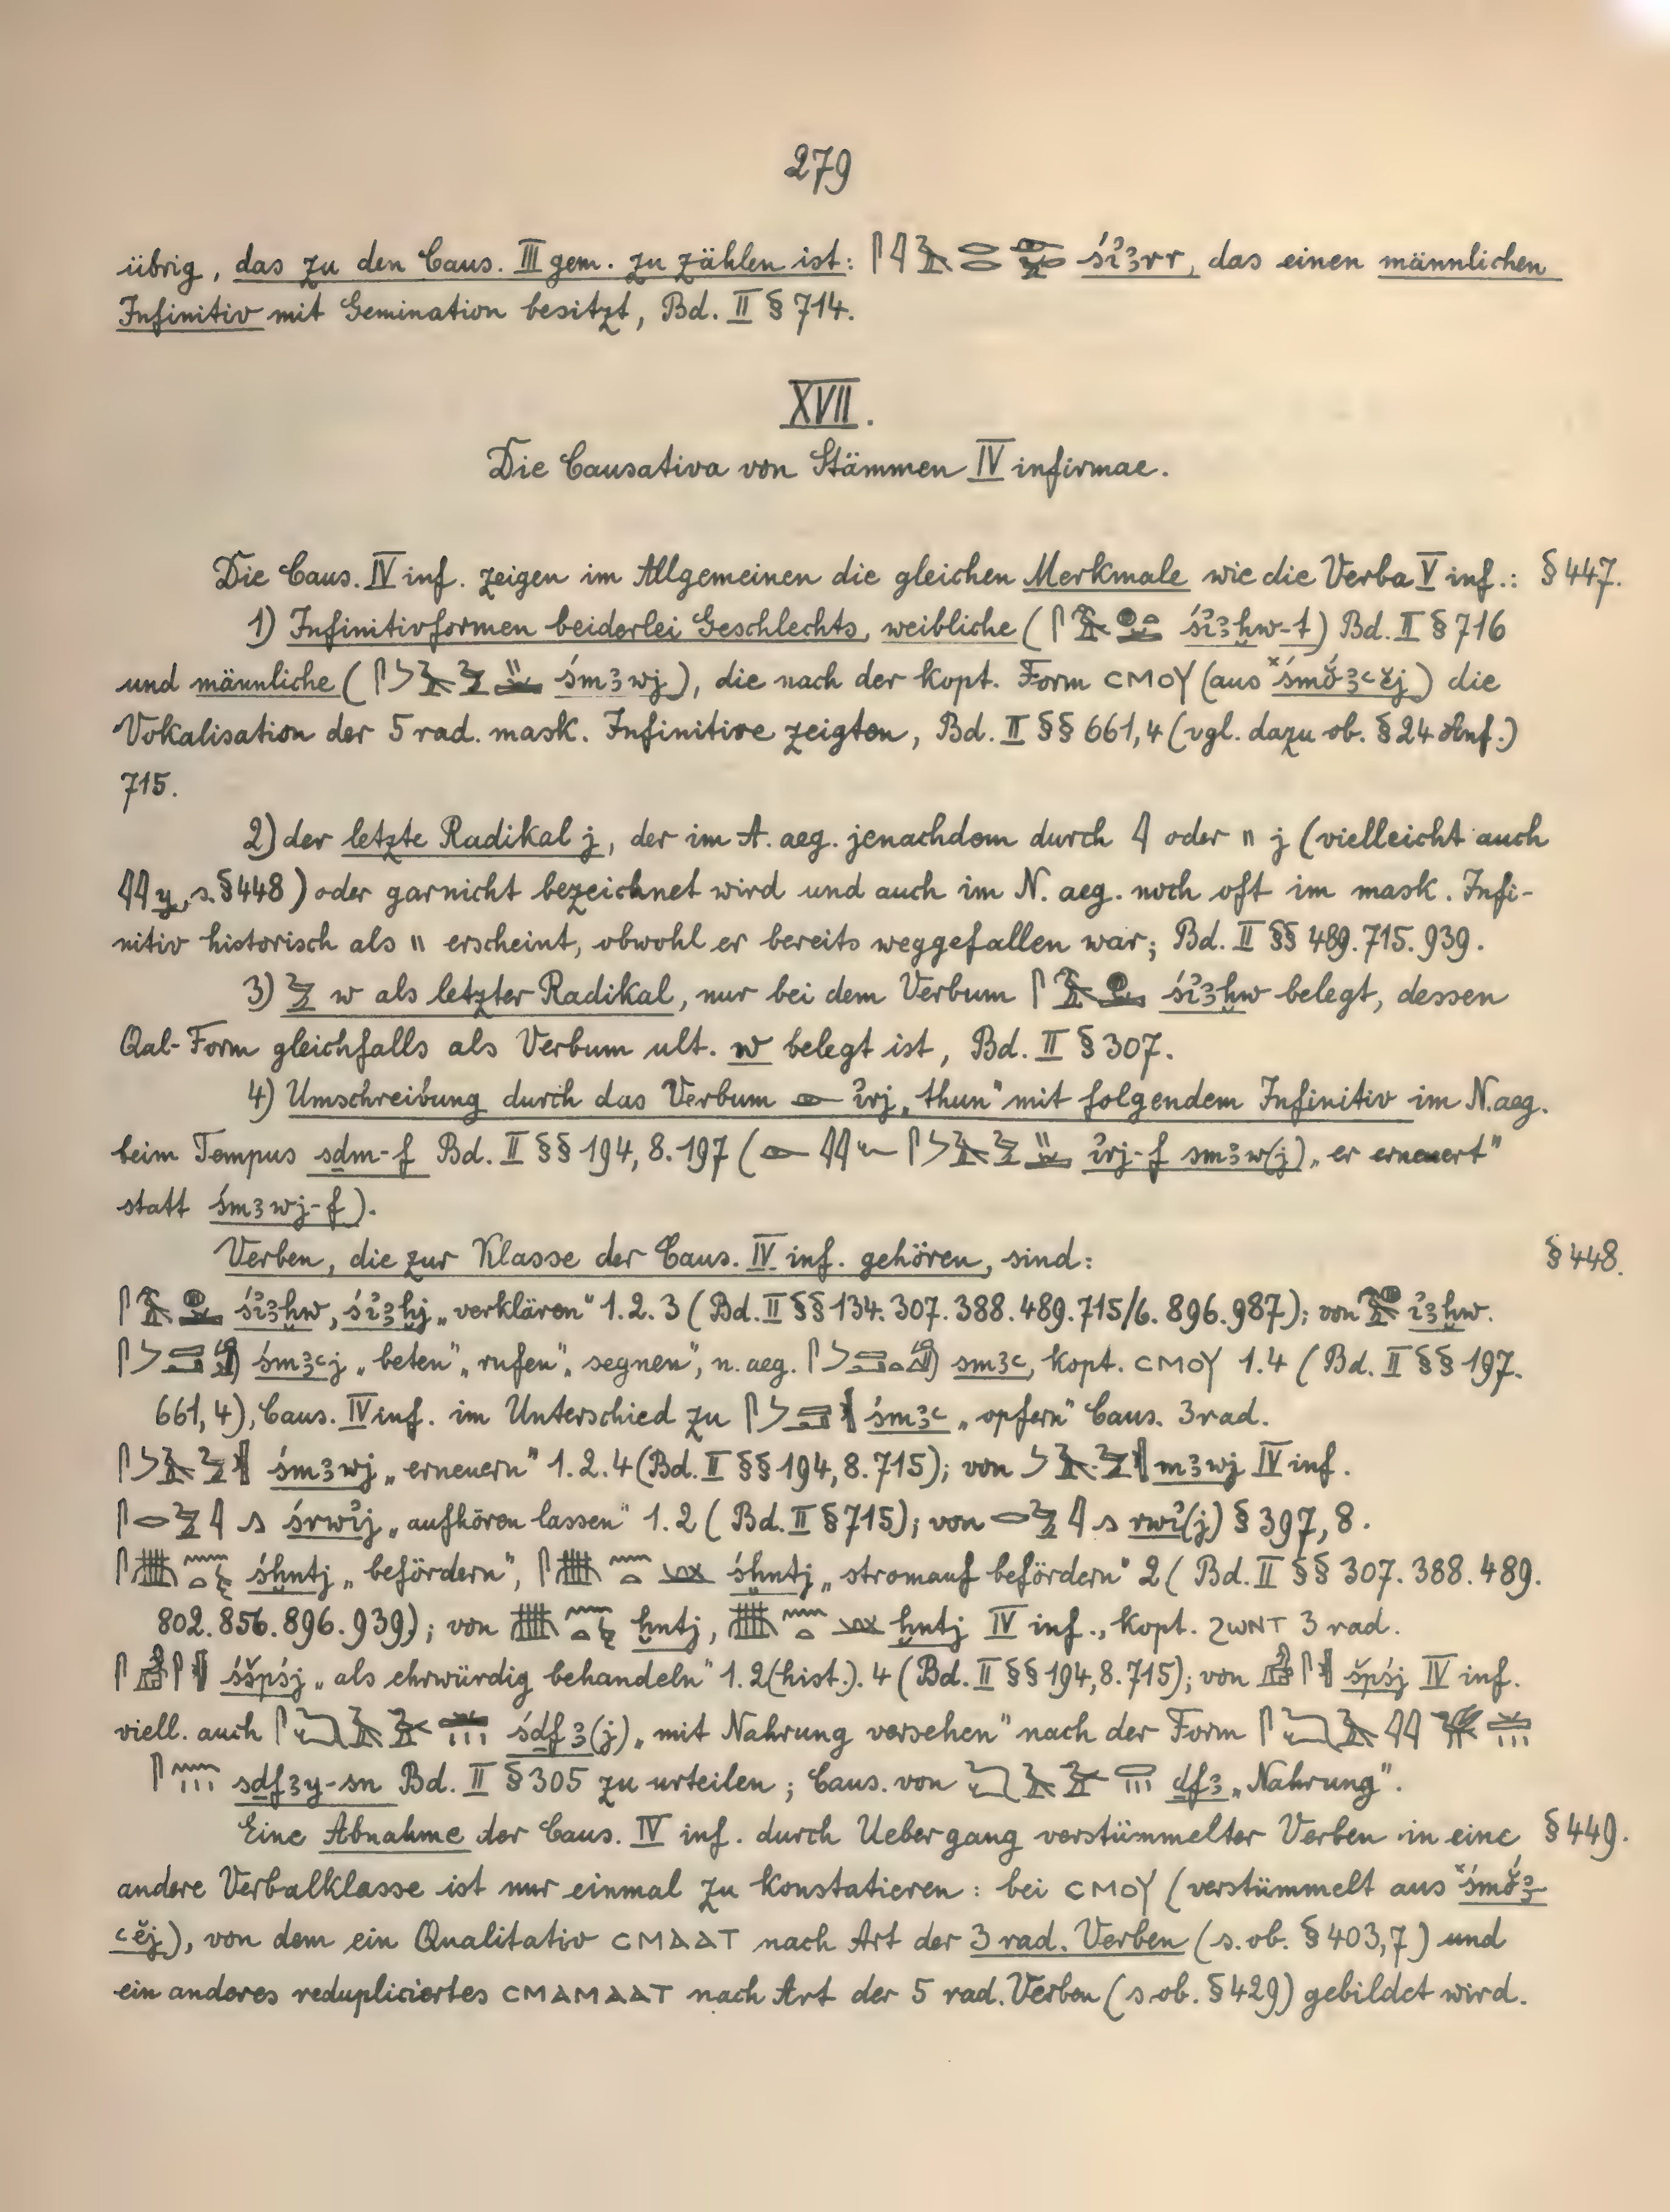 279
übrig, das zu den Caus. III gem. zu zählen ist: śỉꜣrr, das einen männlichen
Infinitiv mit Gemination besitzt, Bd. II § 714.
XVII.
Die Causativa von Stämmen IV infirmae.
Die Caus. IV inf. zeigen im Allgemeinen die gleichen Merkmale wie die Verba V inf.: § 447.
1) Infinitivformen beiderlei Geschlechts, weibliche ( śỉꜣḫw-t) Bd. II § 716
und männliche ( śmꜣwj), die nach der kopt. Form ⲥⲙⲟⲩ (aus ˣśmŏ́ꜣꜥĕj) die
Vokalisation der 5 rad. mask. Infinitive zeigten, Bd. II §§ 661,4 (vgl. dazu ob. § 24 Anf.)
715.
2) der letzte Radikal j, der im A. aeg. jenachdem durch 𓇋 oder 𓏭 j (vielleicht auch
𓇋𓇋 y, s. § 448) oder garnicht bezeichnet wird und auch im N. aeg. noch oft im mask. Infi-
nitiv historisch als 𓏭 erscheint, obwohl er bereits weggefallen war; Bd. II §§ 489. 715. 939.
3) 𓅱 w als letzter Radikal, nur bei dem Verbum śỉꜣḫw belegt, dessen
Qal-Form gleichfalls als Verbum ult. w belegt ist, Bd. II § 307.
4) Umschreibung durch das Verbum ỉrj „thun" mit folgendem Infinitiv im N. aeg.
beim Tempus sḏm-f Bd. II §§ 194, 8. 197 ( ỉrj-f smꜣw(j) „er erneuert"
statt śmꜣwj-f).
Verben, die zur Klasse der Caus. IV inf. gehören, sind: § 448.
śỉꜣḫw, śỉꜣḫj „verklären" 1. 2. 3 (Bd. II §§ 134. 307. 388. 489. 715/6. 896. 987); von ỉꜣḫw.
śmꜣꜥj „beten", „rufen", „segnen", n. aeg. smꜣꜥ, kopt. ⲥⲙⲟⲩ 1. 4 (Bd. II §§ 197.
661, 4), Caus. IV inf. im Unterschied zu śmꜣꜥ „opfern" Caus. 3 rad.
śmꜣwj „erneuern" 1. 2. 4 (Bd. II §§ 194, 8. 715); von mꜣwj IV inf.
śrwỉj „aufhören lassen" 1. 2 (Bd. II § 715); von rwỉ(j) § 397, 8.
śḫntj „befördern", śḫntj „stromauf befördern" 2 (Bd. II §§ 307. 388. 489.
802. 856. 896. 939); von ḫntj, ḫntj IV inf., kopt. ϩⲱⲛⲧ 3 rad.
śšpśj „als ehrwürdig behandeln" 1. 2 (hist.). 4 (Bd. II §§ 194, 8. 715); von špśj IV inf.
viell. auch śḏfꜣ(j) „mit Nahrung versehen" nach der Form
sḏfꜣy-sn Bd. II § 305 zu urteilen; Caus. von ḏfꜣ „Nahrung".
Eine Abnahme der Caus. IV inf. durch Uebergang verstümmelter Verben in eine § 449.
andere Verbalklasse ist nur einmal zu konstatieren: bei ⲥⲙⲟⲩ (verstümmelt aus ˣśmŏ́ꜣ-
ꜥĕj), von dem ein Qualitativ ⲥⲙⲁⲁⲧ nach Art der 3 rad. Verben (s. ob. § 403,7) und
ein anderes redupliciertes ⲥⲙⲁⲙⲁⲁⲧ nach Art der 5 rad. Verben (s. ob. § 429) gebildet wird.